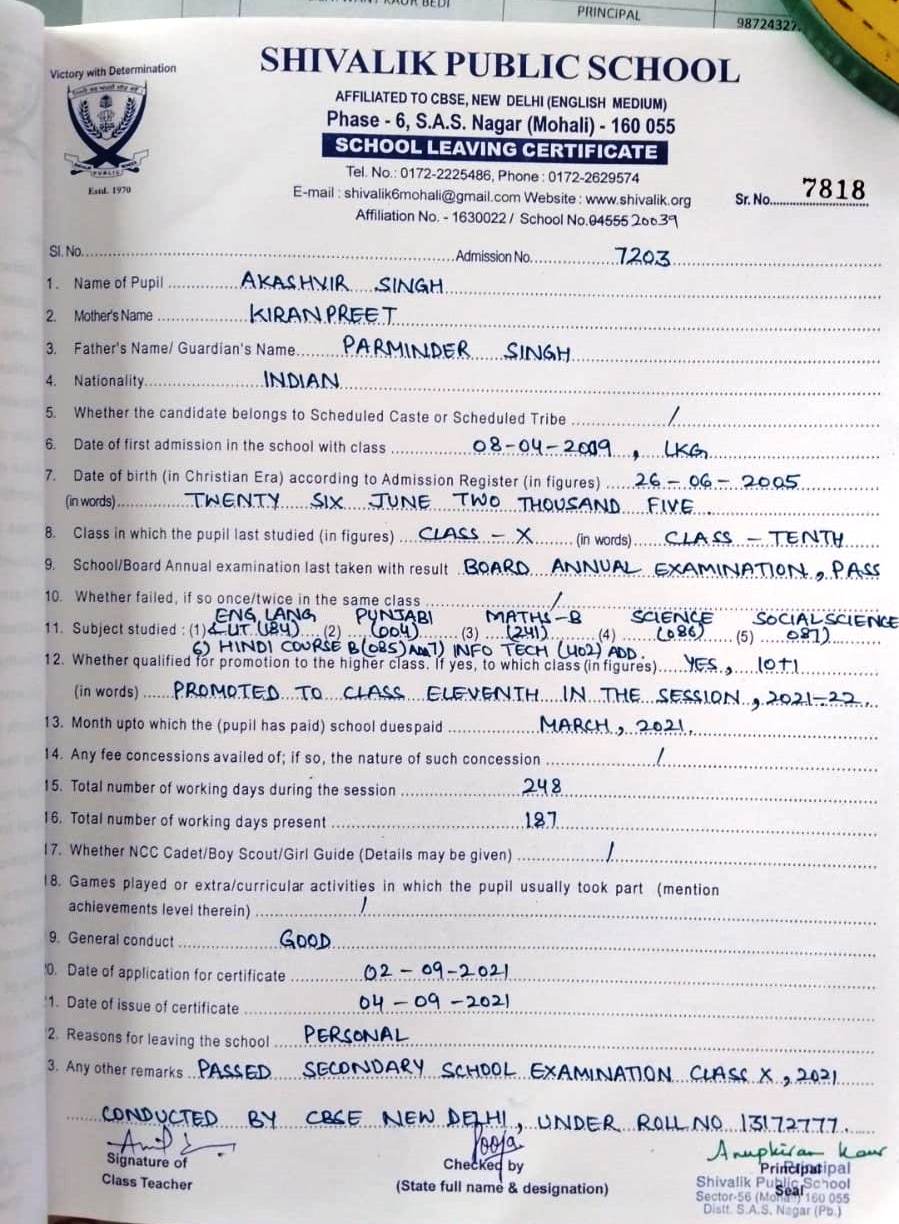 KAUR BEDI
PRINCIPAL
98724327
Victory with Determination
SHIVALIK PUBLIC SCHOOL
AFFILIATED TO CBSE, NEW DELHI (ENGLISH MEDIUM)
Phase - 6, S.A.S. Nagar (Mohali) - 160 055
SCHOOL LEAVING CERTIFICATE
Tel. No.: 0172-2225486, Phone : 0172-2629574
E-mail : shivalik6mohali@gmail.com Website : www.shivalik.org
PUBLIC
Estd. 1970
Sr. No. 7818
Affiliation No. - 1630022 / School No. 04555 20039
Sl. No. Admission No. 7203
1. Name of Pupil AKASHVIR SINGH
2. Mother's Name KIRANPREET
3. Father's Name/ Guardian's Name PARMINDER SINGH
4. Nationality INDIAN
5. Whether the candidate belongs to Scheduled Caste or Scheduled Tribe /
6. Date of first admission in the school with class 08-04- , LKG
7. Date of birth (in Christian Era) according to Admission Register (in figures) 26-06-2005
(in words) TWENTY SIX JUNE TWO THOUSAND FIVE.
8. Class in which the pupil last studied (in figures) CLASS - X (in words) CLASS - TENTH
9. School/Board Annual examination last taken with result BOARD ANNUAL EXAMINATION, PASS
10. Whether failed, if so once/twice in the same class /
11. Subject studied : (1) ENG LANG & LIT (184) (2) PUNJABI (004) (3) MATHS-B (241) (4) SCIENCE (086) (5) SOCIAL SCIENCE 087)
6) HINDI COURSE B(085) 7) INFO TECH (402) ADD.
12. Whether qualified for promotion to the higher class. If yes, to which class (in figures) YES, 10+1
(in words) PROMOTED TO CLASS ELEVENTH IN THE SESSION, 2021-22.
13. Month upto which the (pupil has paid) school duespaid MARCH, 2021.
14. Any fee concessions availed of; if so, the nature of such concession /
15. Total number of working days during the session 248
16. Total number of working days present 187
17. Whether NCC Cadet/Boy Scout/Girl Guide (Details may be given) /
18. Games played or extra/curricular activities in which the pupil usually took part (mention
achievements level therein) /
9. General conduct GOOD
0. Date of application for certificate 02-09-2021
1. Date of issue of certificate 04-09-2021
2. Reasons for leaving the school PERSONAL
3. Any other remarks PASSED SECONDARY SCHOOL EXAMINATION CLASS X, 2021
CONDUCTED BY CBSE NEW DELHI, UNDER ROLL NO 13172777.
Pooja
Anupkiran Kaur
Signature of
Class Teacher
Checked by
(State full name & designation)
Principal
Seal
Principal
Shivalik Public School
Sector-56 (Mohali) 160 055
Distt. S.A.S. Nagar (Pb.)